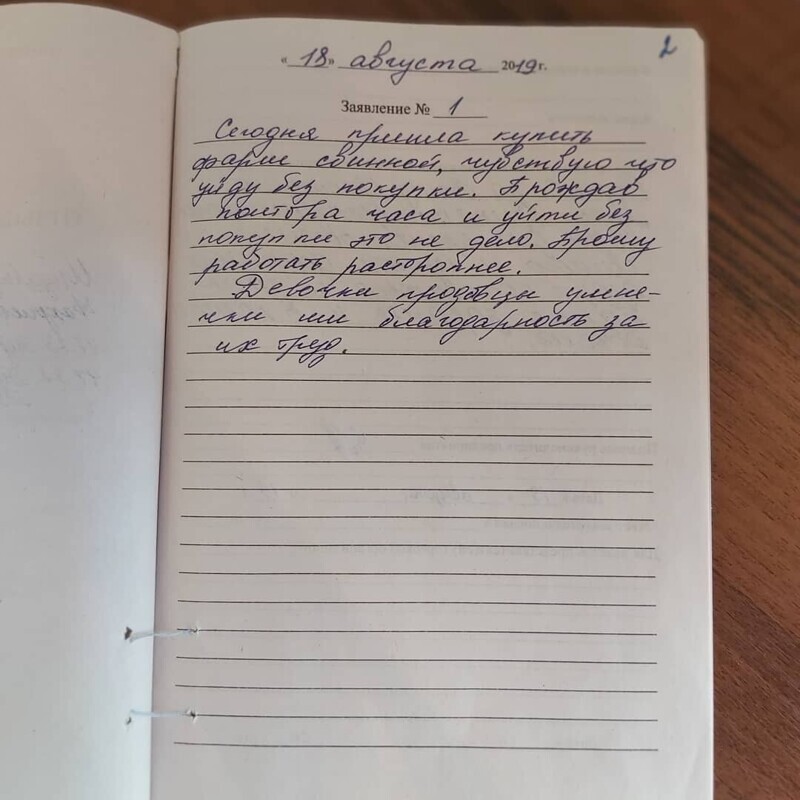 2
«18» августа 2019 г.
Заявление № 1
Сегодня пришла купить
фарш свинной, чувствую что
уйду без покупки. Прождав
полтора часа и уйти без
покупки это не дело. Прошу
работать расторопнее.
Девочки продовцы умни-
чки им благодарность за
их труд.